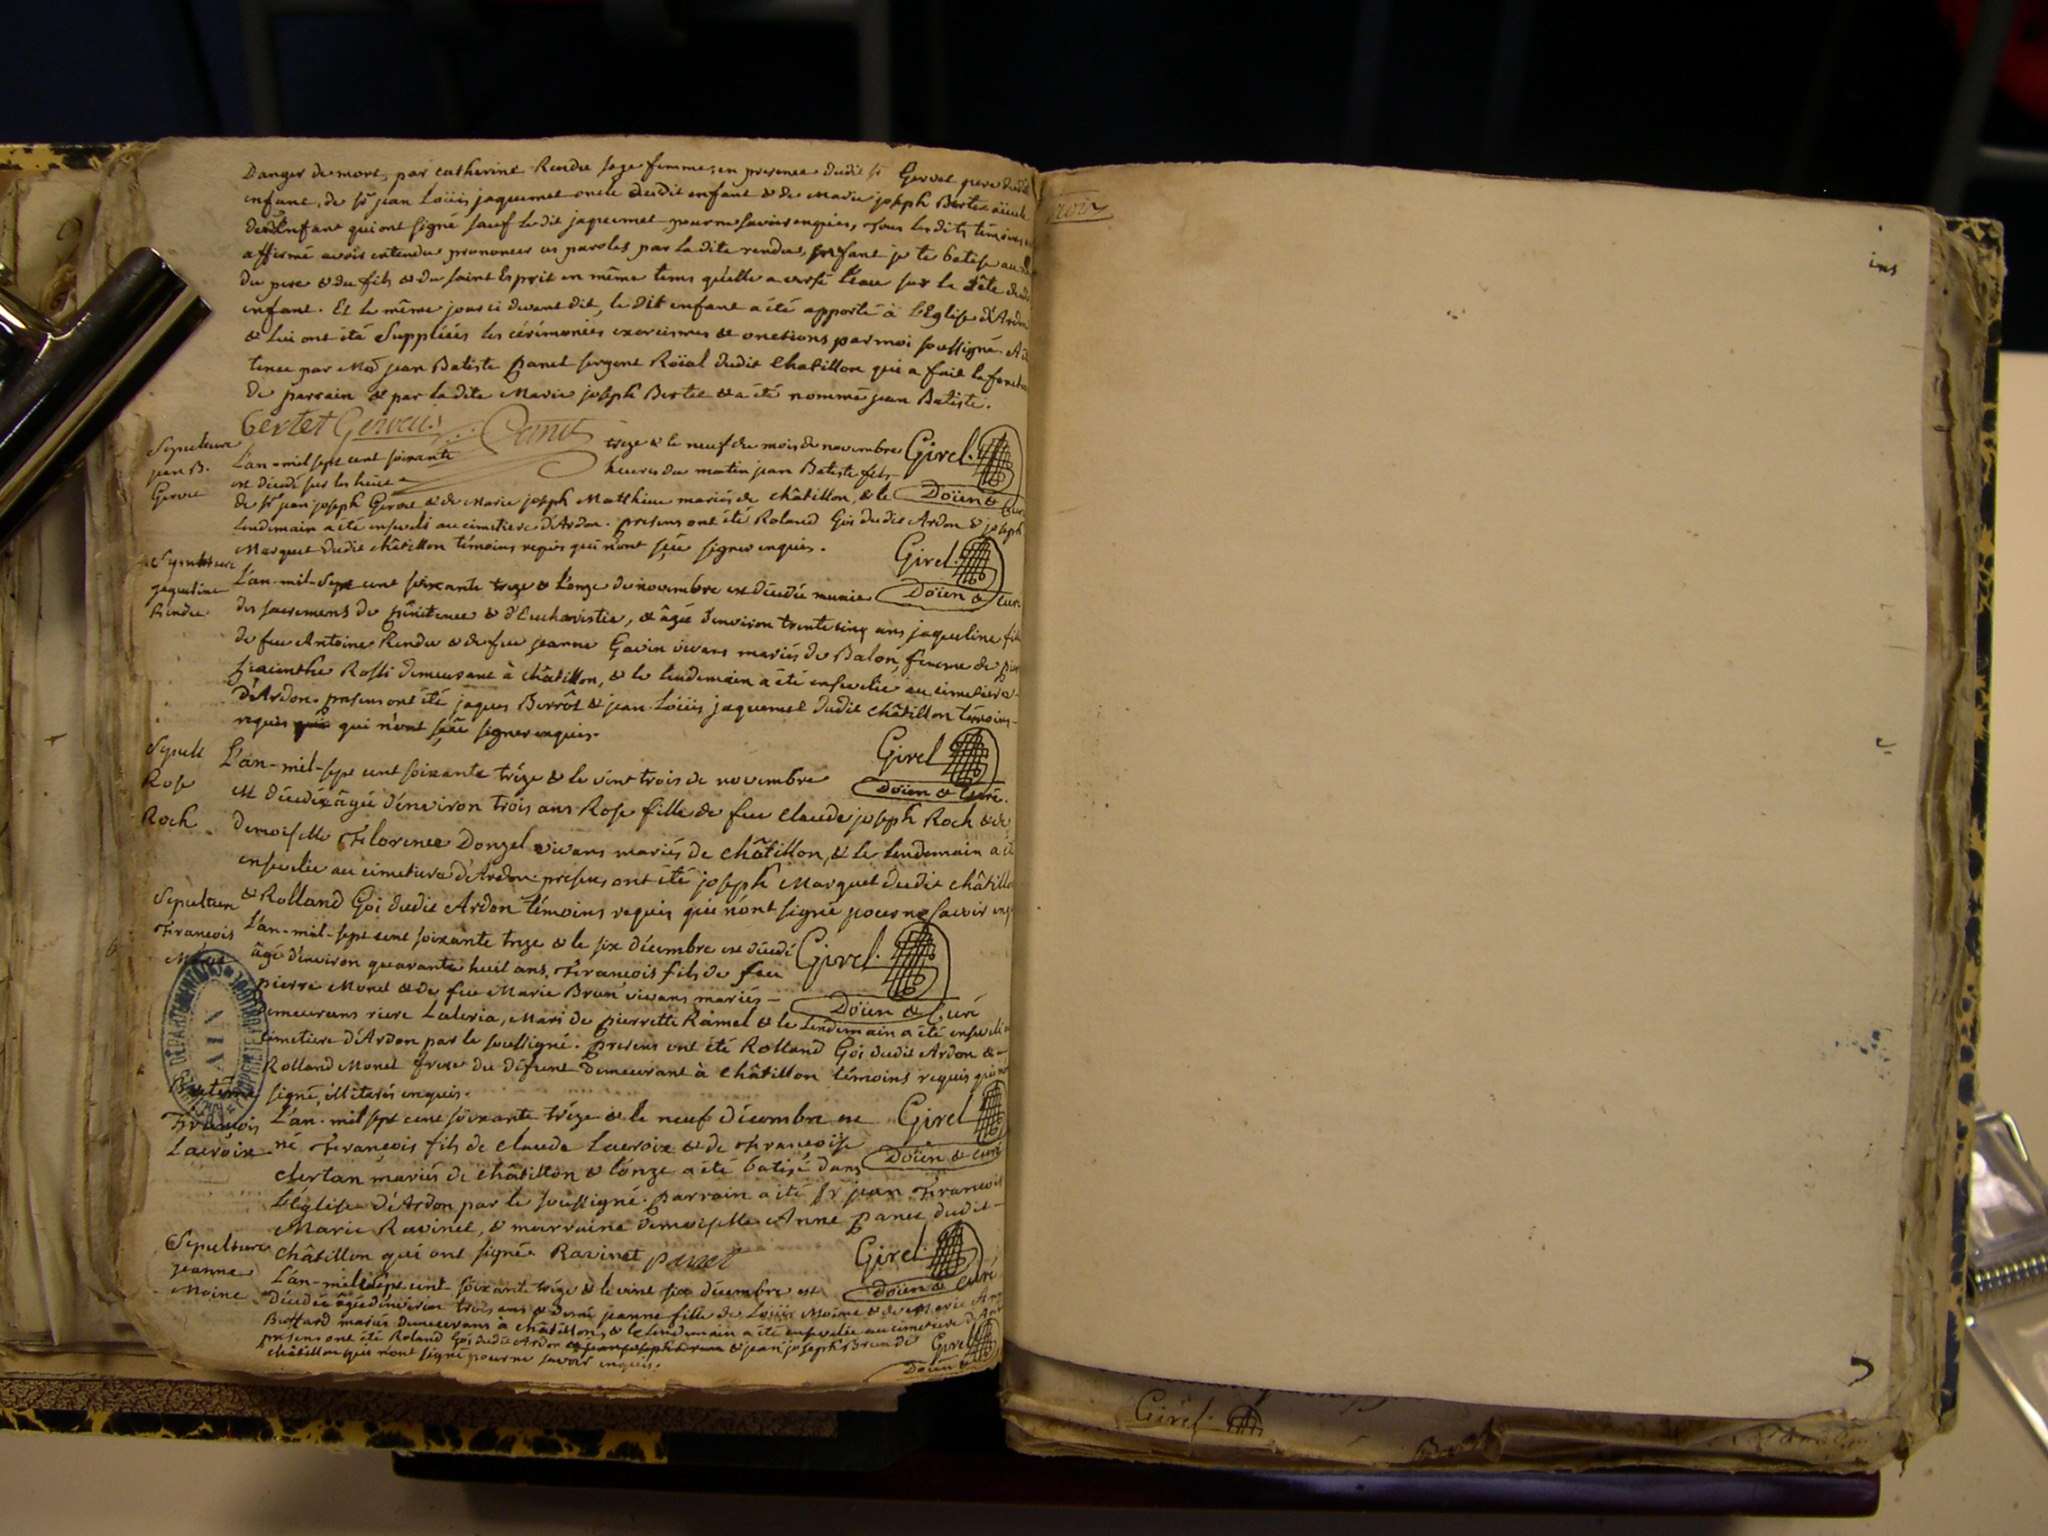 Danger de mort, par catherine Rendu sage femme, en presence dudit sr Gervet pere dudit
enfant, de sr jean Loüis jaquemet oncle dudit enfant & de Marie joseph Bertet aïeule
dud. Enfant qui ont signé sauf le dit jaquemet pour ne savoir enquis, tous les dits témoins
affirmé avoir entendu prononcer ces paroles par la dite rendu, enfant je te batise au
du pere & du fils & du saint Esprit en même tems qu'elle a versé l'eau sur la tête dudit
enfant. Et le même jour ci devant dit, le dit enfant a été apporté à l'Eglise d'Ardon
& lui ont été Suppliéés les cérémonies exorcismes & onctions par moi soussigné. A été
tenu par jean Batiste Panet sergent Roïal dudit Chatillon qui a fait la fonction
de parrain & par la dite Marie joseph Bertet & a été nommé jean Batiste.
bertet Gervet Panet
Sepulture
jean B.
L'an-mil sept cent soixante treze & le neuf du mois de novembre Girel.
est décédé sur les huit heures du matin jean Batiste fils
de sr jean joseph Gervet & de Marie joseph Matthieu mariés de châtillon, & le Doïen & Curé
lendemain a été enseveli au cimetiere d'Ardon. presens ont été Roland Goi dudit Ardon & joseph
Marquet dudit châtillon témoins requis qui n'ont sçu signer enquis. Girel.
Doïen & Curé
Sepulture
jaqueline
Rendu
L'an-mil-sept cent soixante treze & l'onze de novembre est décédée munie
des sacremens de Pénitence & d'Eucharistie, & âgée d'environ trente cinq ans jaqueline fille
de feu Antoine Rendu & de feu jeanne Gavin vivans mariés de Balon, femme de
hiacinthe Rossi demeurant à châtillon, & le lendemain a été ensevelie au cimetiere
d'Ardon. presens ont été jaques Berrôt & jean Loüis jaquemet dudit châtillon témoins
requis qui n'ont sçu signer enquis. Girel
Doïen & Curé.
Sepult
Rose
Roch
L'an-mil-sept cent soixante trèze & le vint trois de novembre
est décédée âgée d'environ trois ans Rose fille de feu claude joseph Roch & de
demoiselle Florence Donzel vivans mariés de châtillon, & le lendemain a été
ensevelie au cimetiere d'Ardon. presens ont été joseph Marquet dudit châtillon
& Rolland Goi dudit Ardon témoins requis qui n'ont signé pour ne savoir enquis
Girel.
Doïen & Curé
Sepulture
François
L'an-mil-sept cent soixante treze & le six décembre est décédé
âgé d'environ quarante huit ans, François fils de feu
pierre Monet & de feu Marie Brun vivans mariés
demeurans riere Laleria, Mari de pierrette Ramel & le lendemain a été enseveli au
cimetiere d'Ardon par le soussigné. Presens ont été Rolland Goi dudit Ardon &
Rolland Monet frere du défunt demeurant à châtillon témoins requis qui n'ont
signé, illiterés enquis. Girel
Doïen & Curé
Batême
François
Lacroix
L'an-mil sept cent soixante trèze & le neuf décembre est
né François fils de claude Lacroix & de Françoise
chertan mariés de châtillon & l'onze a été batisé dans
l'Eglise d'Ardon par le soussigné. Parrain a été sr jean François
Marie Ravinet, & marraine demoiselle Anne Panet dudit
châtillon qui ont signé. Ravinet panet
Girel
Doïen & Curé
Sepulture
jeanne
Moine
L'an-mil sept cent soixante trèze & le vint six décembre est
décédée âgée d'environ trois ans & demi jeanne fille de Loüis Moine & de Marie
Buffard mariés demeurans à châtillon, & le lendemain a été ensevelie au cimetiere d'Ardon
presens ont été Roland Goi dudit Ardon & jean joseph Brun dudit
châtillon qui n'ont signé pour ne savoir enquis.
Girel
Doïen &
AIN
ins
Girel.